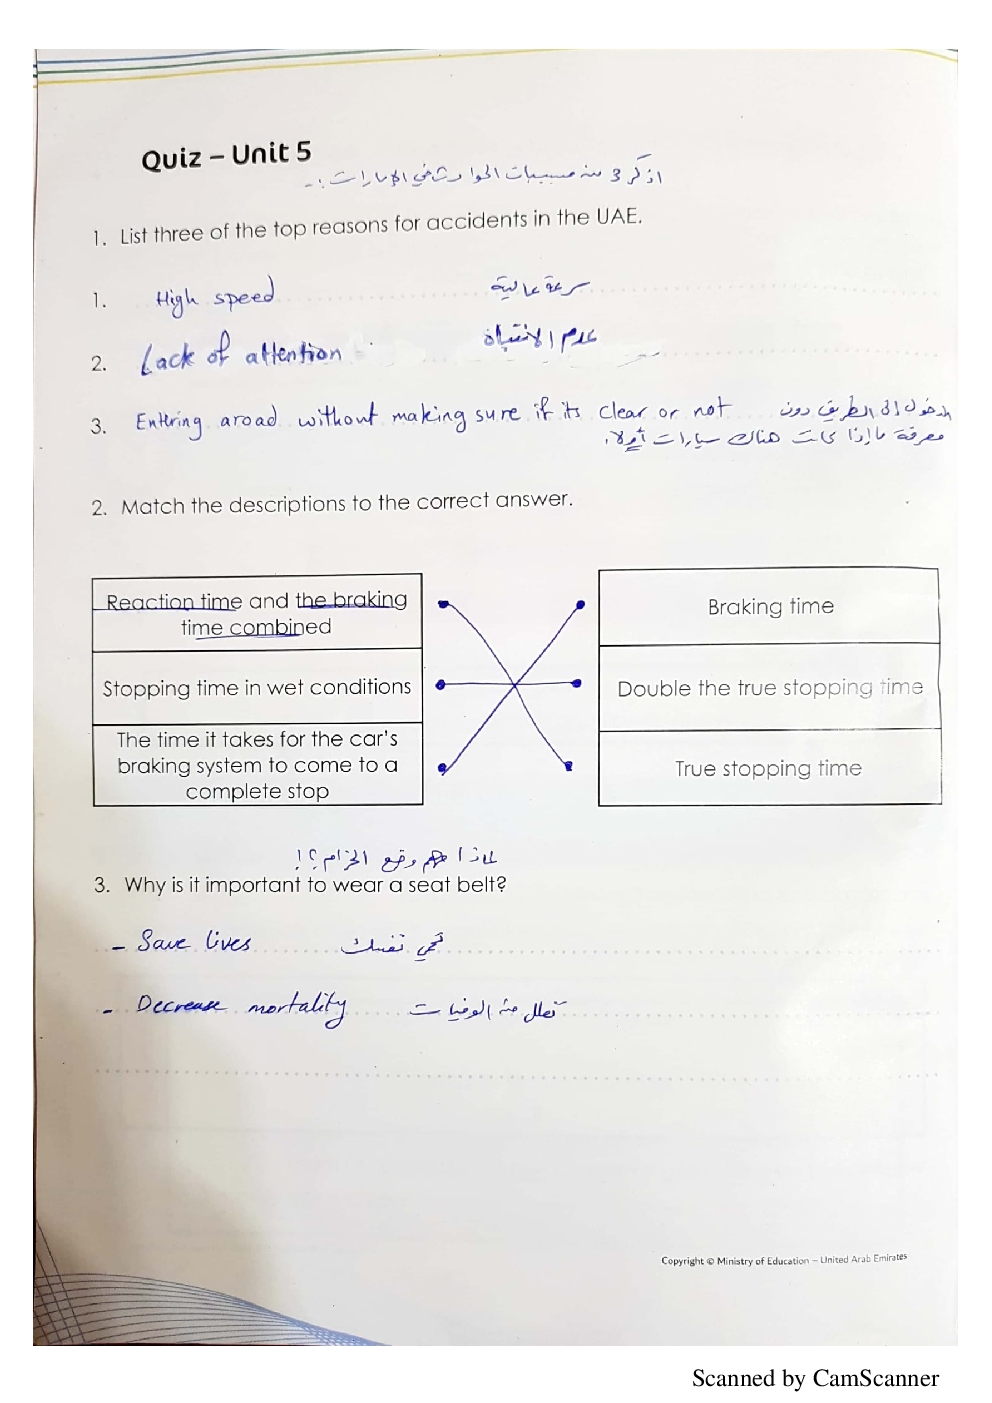 Quiz – Unit 5
اذكر 3 من مسببات الحوادث في الإمارات :-
1. List three of the top reasons for accidents in the UAE.
1. High speed سرعة عالية
2. Lack of attention عدم الانتباه
3. Entering aroad without making sure if its clear or not الدخول إلى الطريق دون
معرفة ما إذا كانت هناك سيارات أم لا.
2. Match the descriptions to the correct answer.
Reaction time and the braking
time combined
Braking time
Stopping time in wet conditions
Double the true stopping time
The time it takes for the car's
braking system to come to a
complete stop
True stopping time
لماذا وضع الحزام؟!
3. Why is it important to wear a seat belt?
- Save lives تحمي نفسك
- Decrease mortality تقلل من الوفيات
Copyright © Ministry of Education – United Arab Emirates
Scanned by CamScanner